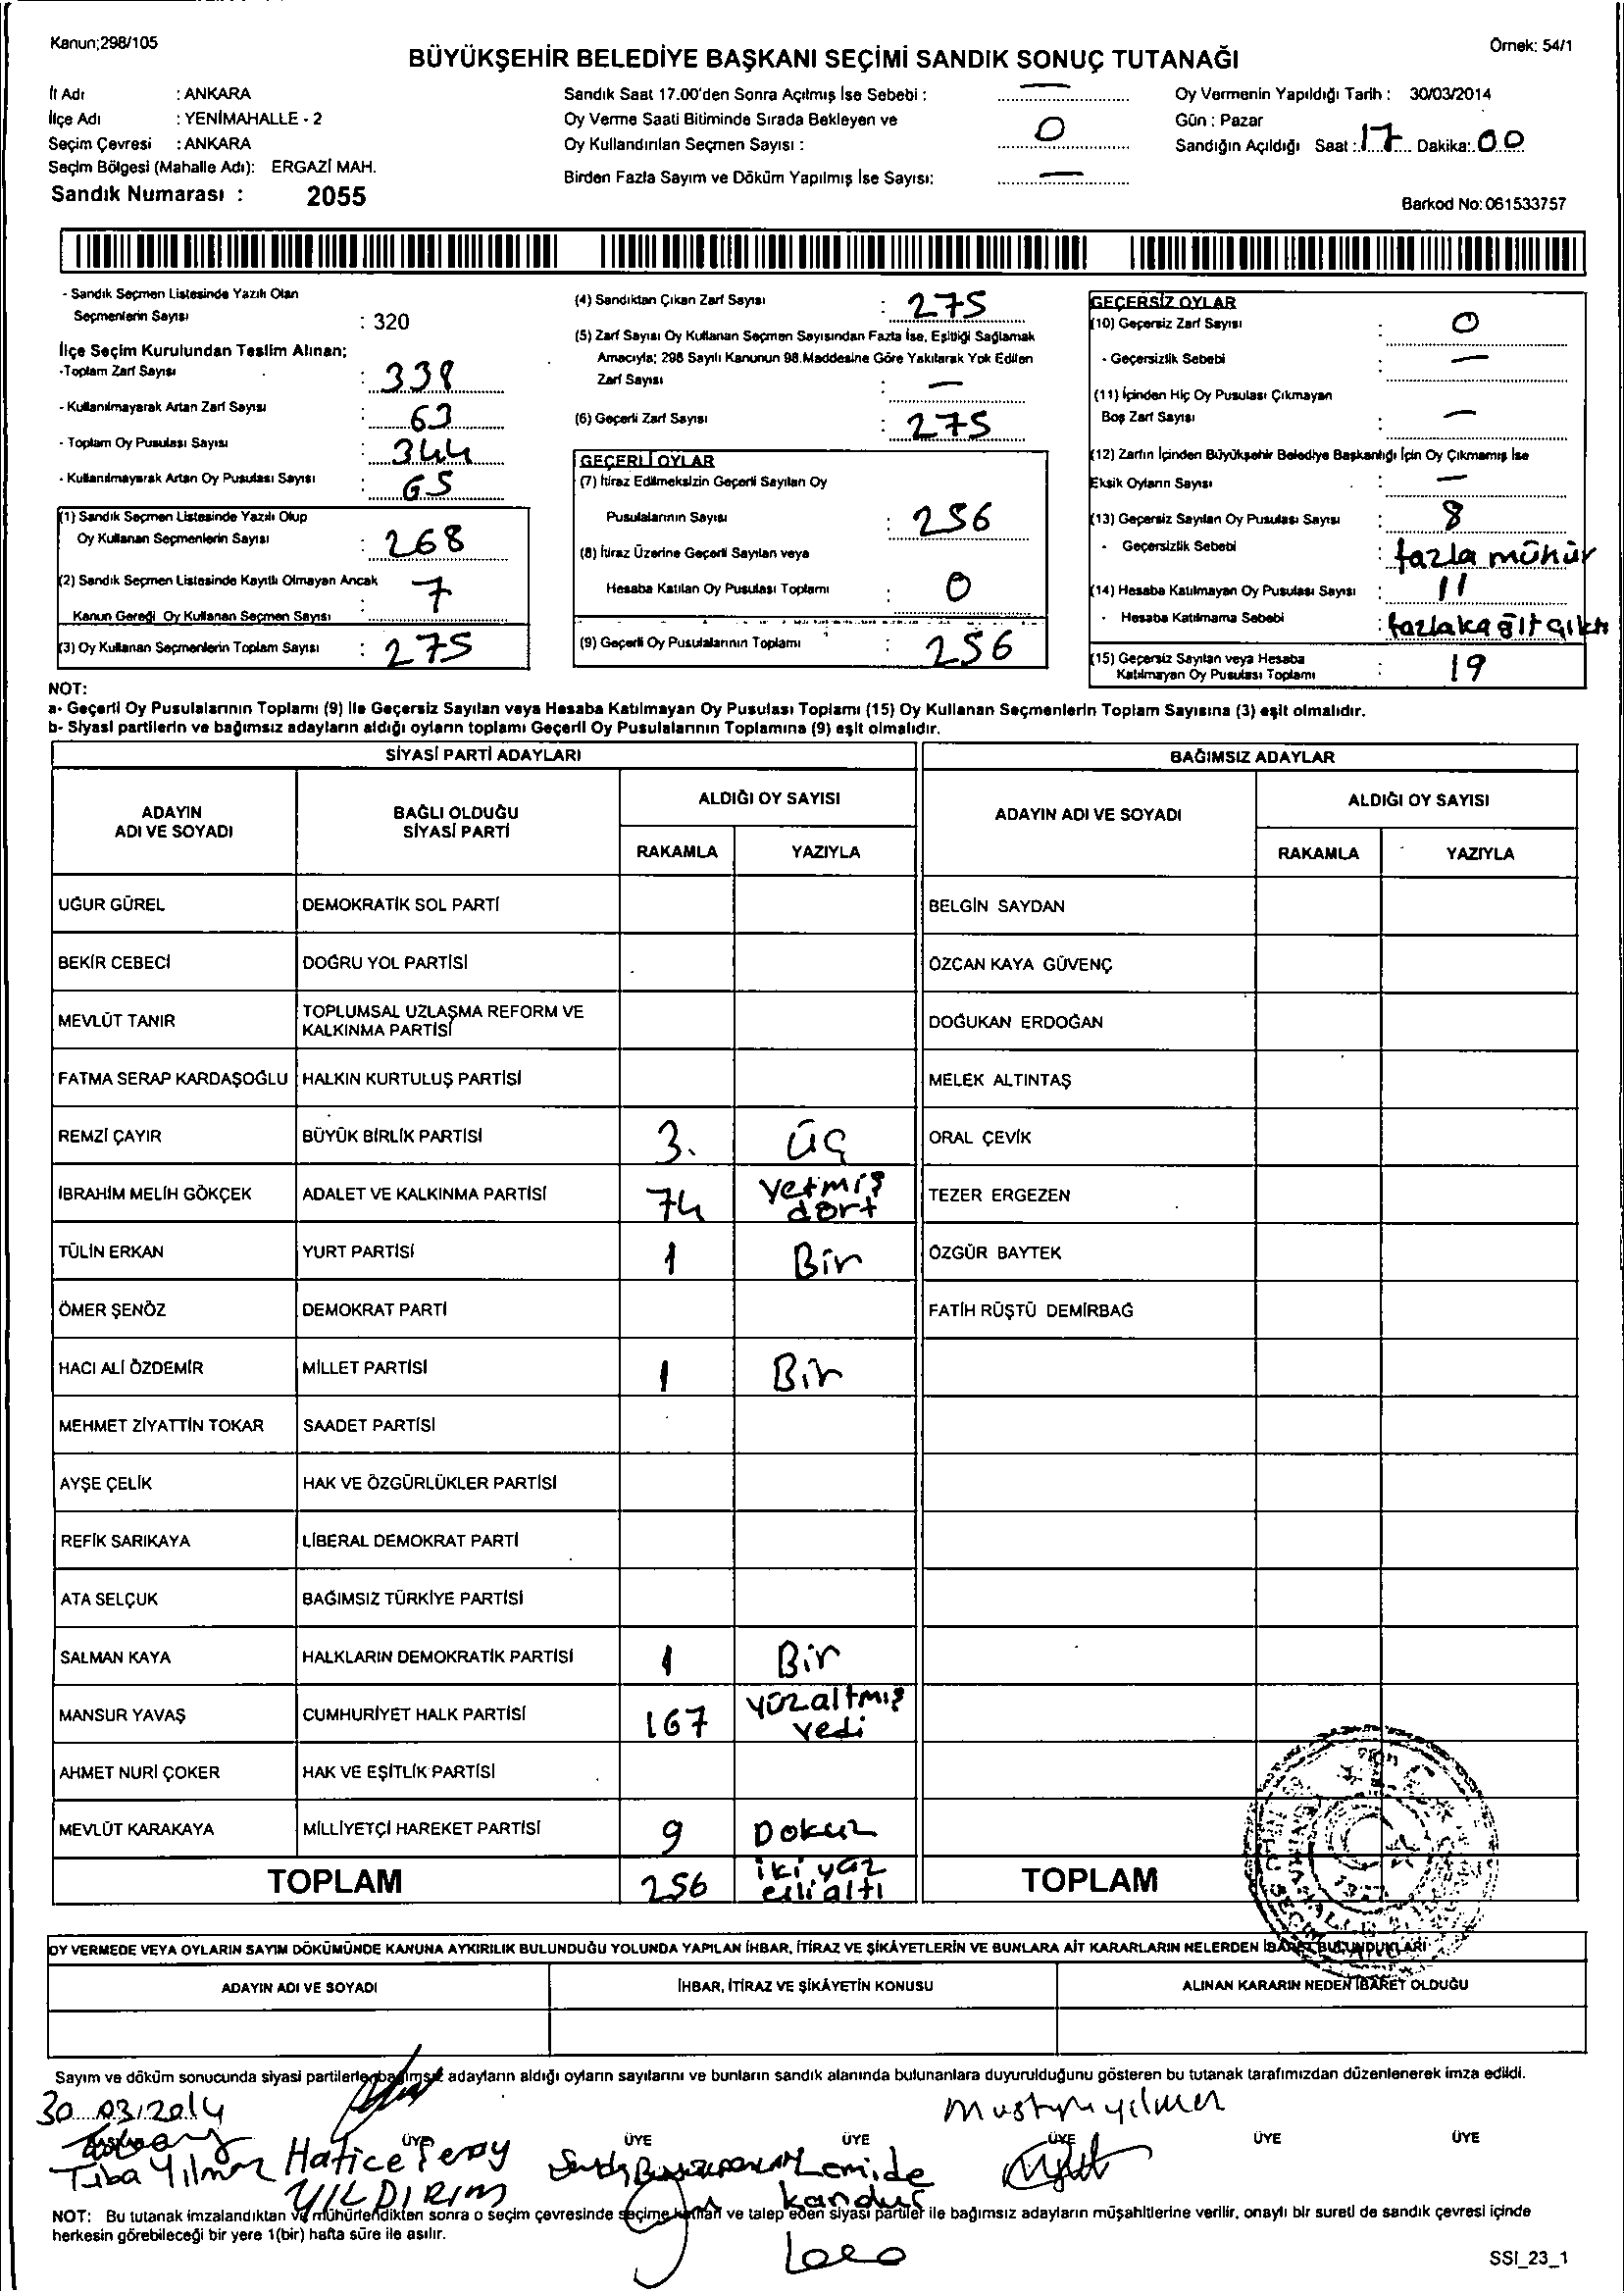 Kanun;298/105
Örnek: 54/1
BÜYÜKŞEHİR BELEDİYE BAŞKANI SEÇİMİ SANDIK SONUÇ TUTANAĞI
İl Adı : ANKARA
İlçe Adı : YENİMAHALLE - 2
Seçim Çevresi : ANKARA
Seçim Bölgesi (Mahalle Adı): ERGAZİ MAH.
Sandık Numarası : 2055
Sandık Saat 17.00'den Sonra Açılmış İse Sebebi : —
Oy Verme Saati Bitiminde Sırada Bekleyen ve
Oy Kullandırılan Seçmen Sayısı : 0
Birden Fazla Sayım ve Döküm Yapılmış İse Sayısı: —
Oy Vermenin Yapıldığı Tarih : 30/03/2014
Gün : Pazar
Sandığın Açıldığı Saat : 17 Dakika: 00
Barkod No: 061533757
- Sandık Seçmen Listesinde Yazılı Olan
Seçmenlerin Sayısı : 320
İlçe Seçim Kurulundan Teslim Alınan;
-Toplam Zarf Sayısı : 338
- Kullanılmayarak Artan Zarf Sayısı : 63
- Toplam Oy Pusulası Sayısı : 344
- Kullanılmayarak Artan Oy Pusulası Sayısı : 65
(1) Sandık Seçmen Listesinde Yazılı Olup
Oy Kullanan Seçmenlerin Sayısı : 268
(2) Sandık Seçmen Listesinde Kayıtlı Olmayan Ancak
Kanun Gereği Oy Kullanan Seçmen Sayısı : 7
(3) Oy Kullanan Seçmenlerin Toplam Sayısı : 275
(4) Sandıktan Çıkan Zarf Sayısı : 275
(5) Zarf Sayısı Oy Kullanan Seçmen Sayısından Fazla İse, Eşitliği Sağlamak
Amacıyla; 298 Sayılı Kanunun 98.Maddesine Göre Yakılarak Yok Edilen
Zarf Sayısı : —
(6) Geçerli Zarf Sayısı : 275
GEÇERLİ OYLAR
(7) İtiraz Edilmeksizin Geçerli Sayılan Oy
Pusulalarının Sayısı : 256
(8) İtiraz Üzerine Geçerli Sayılan veya
Hesaba Katılan Oy Pusulası Toplamı : 0
(9) Geçerli Oy Pusulalarının Toplamı : 256
GEÇERSİZ OYLAR
(10) Geçersiz Zarf Sayısı : 0
- Geçersizlik Sebebi : —
(11) İçinden Hiç Oy Pusulası Çıkmayan
Boş Zarf Sayısı : —
(12) Zarfın İçinden Büyükşehir Belediye Başkanlığı İçin Oy Çıkmamış İse
Eksik Oyların Sayısı : —
(13) Geçersiz Sayılan Oy Pusulası Sayısı : 8
- Geçersizlik Sebebi : fazla mühür
(14) Hesaba Katılmayan Oy Pusulası Sayısı : 11
- Hesaba Katılmama Sebebi : fazla kağıt çıktı
(15) Geçersiz Sayılan veya Hesaba
Katılmayan Oy Pusulası Toplamı : 19
NOT:
a- Geçerli Oy Pusulalarının Toplamı (9) ile Geçersiz Sayılan veya Hesaba Katılmayan Oy Pusulası Toplamı (15) Oy Kullanan Seçmenlerin Toplam Sayısına (3) eşit olmalıdır.
b- Siyasi partilerin ve bağımsız adayların aldığı oyların toplamı Geçerli Oy Pusulalarının Toplamına (9) eşit olmalıdır.
SİYASİ PARTİ ADAYLARI
BAĞIMSIZ ADAYLAR
ADAYIN ADI VE SOYADI
BAĞLI OLDUĞU SİYASİ PARTİ
ALDIĞI OY SAYISI
RAKAMLA YAZIYLA
ADAYIN ADI VE SOYADI
ALDIĞI OY SAYISI
RAKAMLA YAZIYLA
UĞUR GÜREL DEMOKRATİK SOL PARTİ BELGİN SAYDAN
BEKİR CEBECİ DOĞRU YOL PARTİSİ ÖZCAN KAYA GÜVENÇ
MEVLÜT TANIR TOPLUMSAL UZLAŞMA REFORM VE KALKINMA PARTİSİ DOĞUKAN ERDOĞAN
FATMA SERAP KARDAŞOĞLU HALKIN KURTULUŞ PARTİSİ MELEK ALTINTAŞ
REMZİ ÇAYIR BÜYÜK BİRLİK PARTİSİ 3. üç ORAL ÇEVİK
İBRAHİM MELİH GÖKÇEK ADALET VE KALKINMA PARTİSİ 74 Yetmiş dört TEZER ERGEZEN
TÜLİN ERKAN YURT PARTİSİ 1 Bir ÖZGÜR BAYTEK
ÖMER ŞENÖZ DEMOKRAT PARTİ FATİH RÜŞTÜ DEMİRBAĞ
HACI ALİ ÖZDEMİR MİLLET PARTİSİ 1 Bir
MEHMET ZİYATTİN TOKAR SAADET PARTİSİ
AYŞE ÇELİK HAK VE ÖZGÜRLÜKLER PARTİSİ
REFİK SARIKAYA LİBERAL DEMOKRAT PARTİ
ATA SELÇUK BAĞIMSIZ TÜRKİYE PARTİSİ
SALMAN KAYA HALKLARIN DEMOKRATİK PARTİSİ 1 Bir
MANSUR YAVAŞ CUMHURİYET HALK PARTİSİ 167 yüzaltmış yedi
AHMET NURİ ÇOKER HAK VE EŞİTLİK PARTİSİ
MEVLÜT KARAKAYA MİLLİYETÇİ HAREKET PARTİSİ 9 Dokuz
TOPLAM 256 iki yüz elli altı TOPLAM
OY VERMEDE VEYA OYLARIN SAYIM DÖKÜMÜNDE KANUNA AYKIRILIK BULUNDUĞU YOLUNDA YAPILAN İHBAR, İTİRAZ VE ŞİKÂYETLERİN VE BUNLARA AİT KARARLARIN NELERDEN İBARET BULUNDUKLARI
ADAYIN ADI VE SOYADI İHBAR, İTİRAZ VE ŞİKÂYETİN KONUSU ALINAN KARARIN NEDEN İBARET OLDUĞU
Sayım ve döküm sonucunda siyasi partilerle bağımsız adayların aldığı oyların sayılarını ve bunların sandık alanında bulunanlara duyurulduğunu gösteren bu tutanak tarafımızdan düzenlenerek imza edildi.
30.03.2014
ÜYE ÜYE ÜYE ÜYE ÜYE ÜYE
Tuba Yılmaz Hatice YILDIRIM
NOT: Bu tutanak imzalandıktan ve mühürlendikten sonra o seçim çevresinde seçime katılan ve talep eden siyasi partiler ile bağımsız adayların müşahitlerine verilir, onaylı bir sureti de sandık çevresi içinde
herkesin görebileceği bir yere 1(bir) hafta süre ile asılır.
SSI_23_1